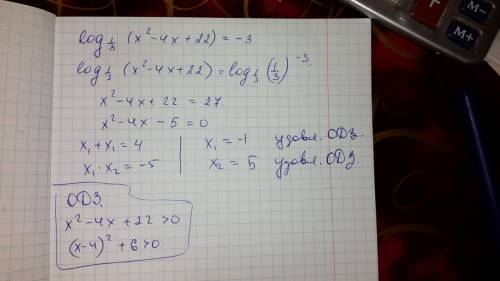 log_{1/3} (x² - 4x + 22) = -3
log_{1/3} (x² - 4x + 22) = log_{1/3} (1/3)^{-3}.
x² - 4x + 22 = 27.
x² - 4x - 5 = 0
x₁ + x₂ = 4 | x₁ = -1 удовл. ОДЗ.
x₁ · x₂ = -5 | x₂ = 5 удовл. ОДЗ
ОДЗ.
x² - 4x + 22 > 0
(x - 4)² + 6 > 0
M-
M+